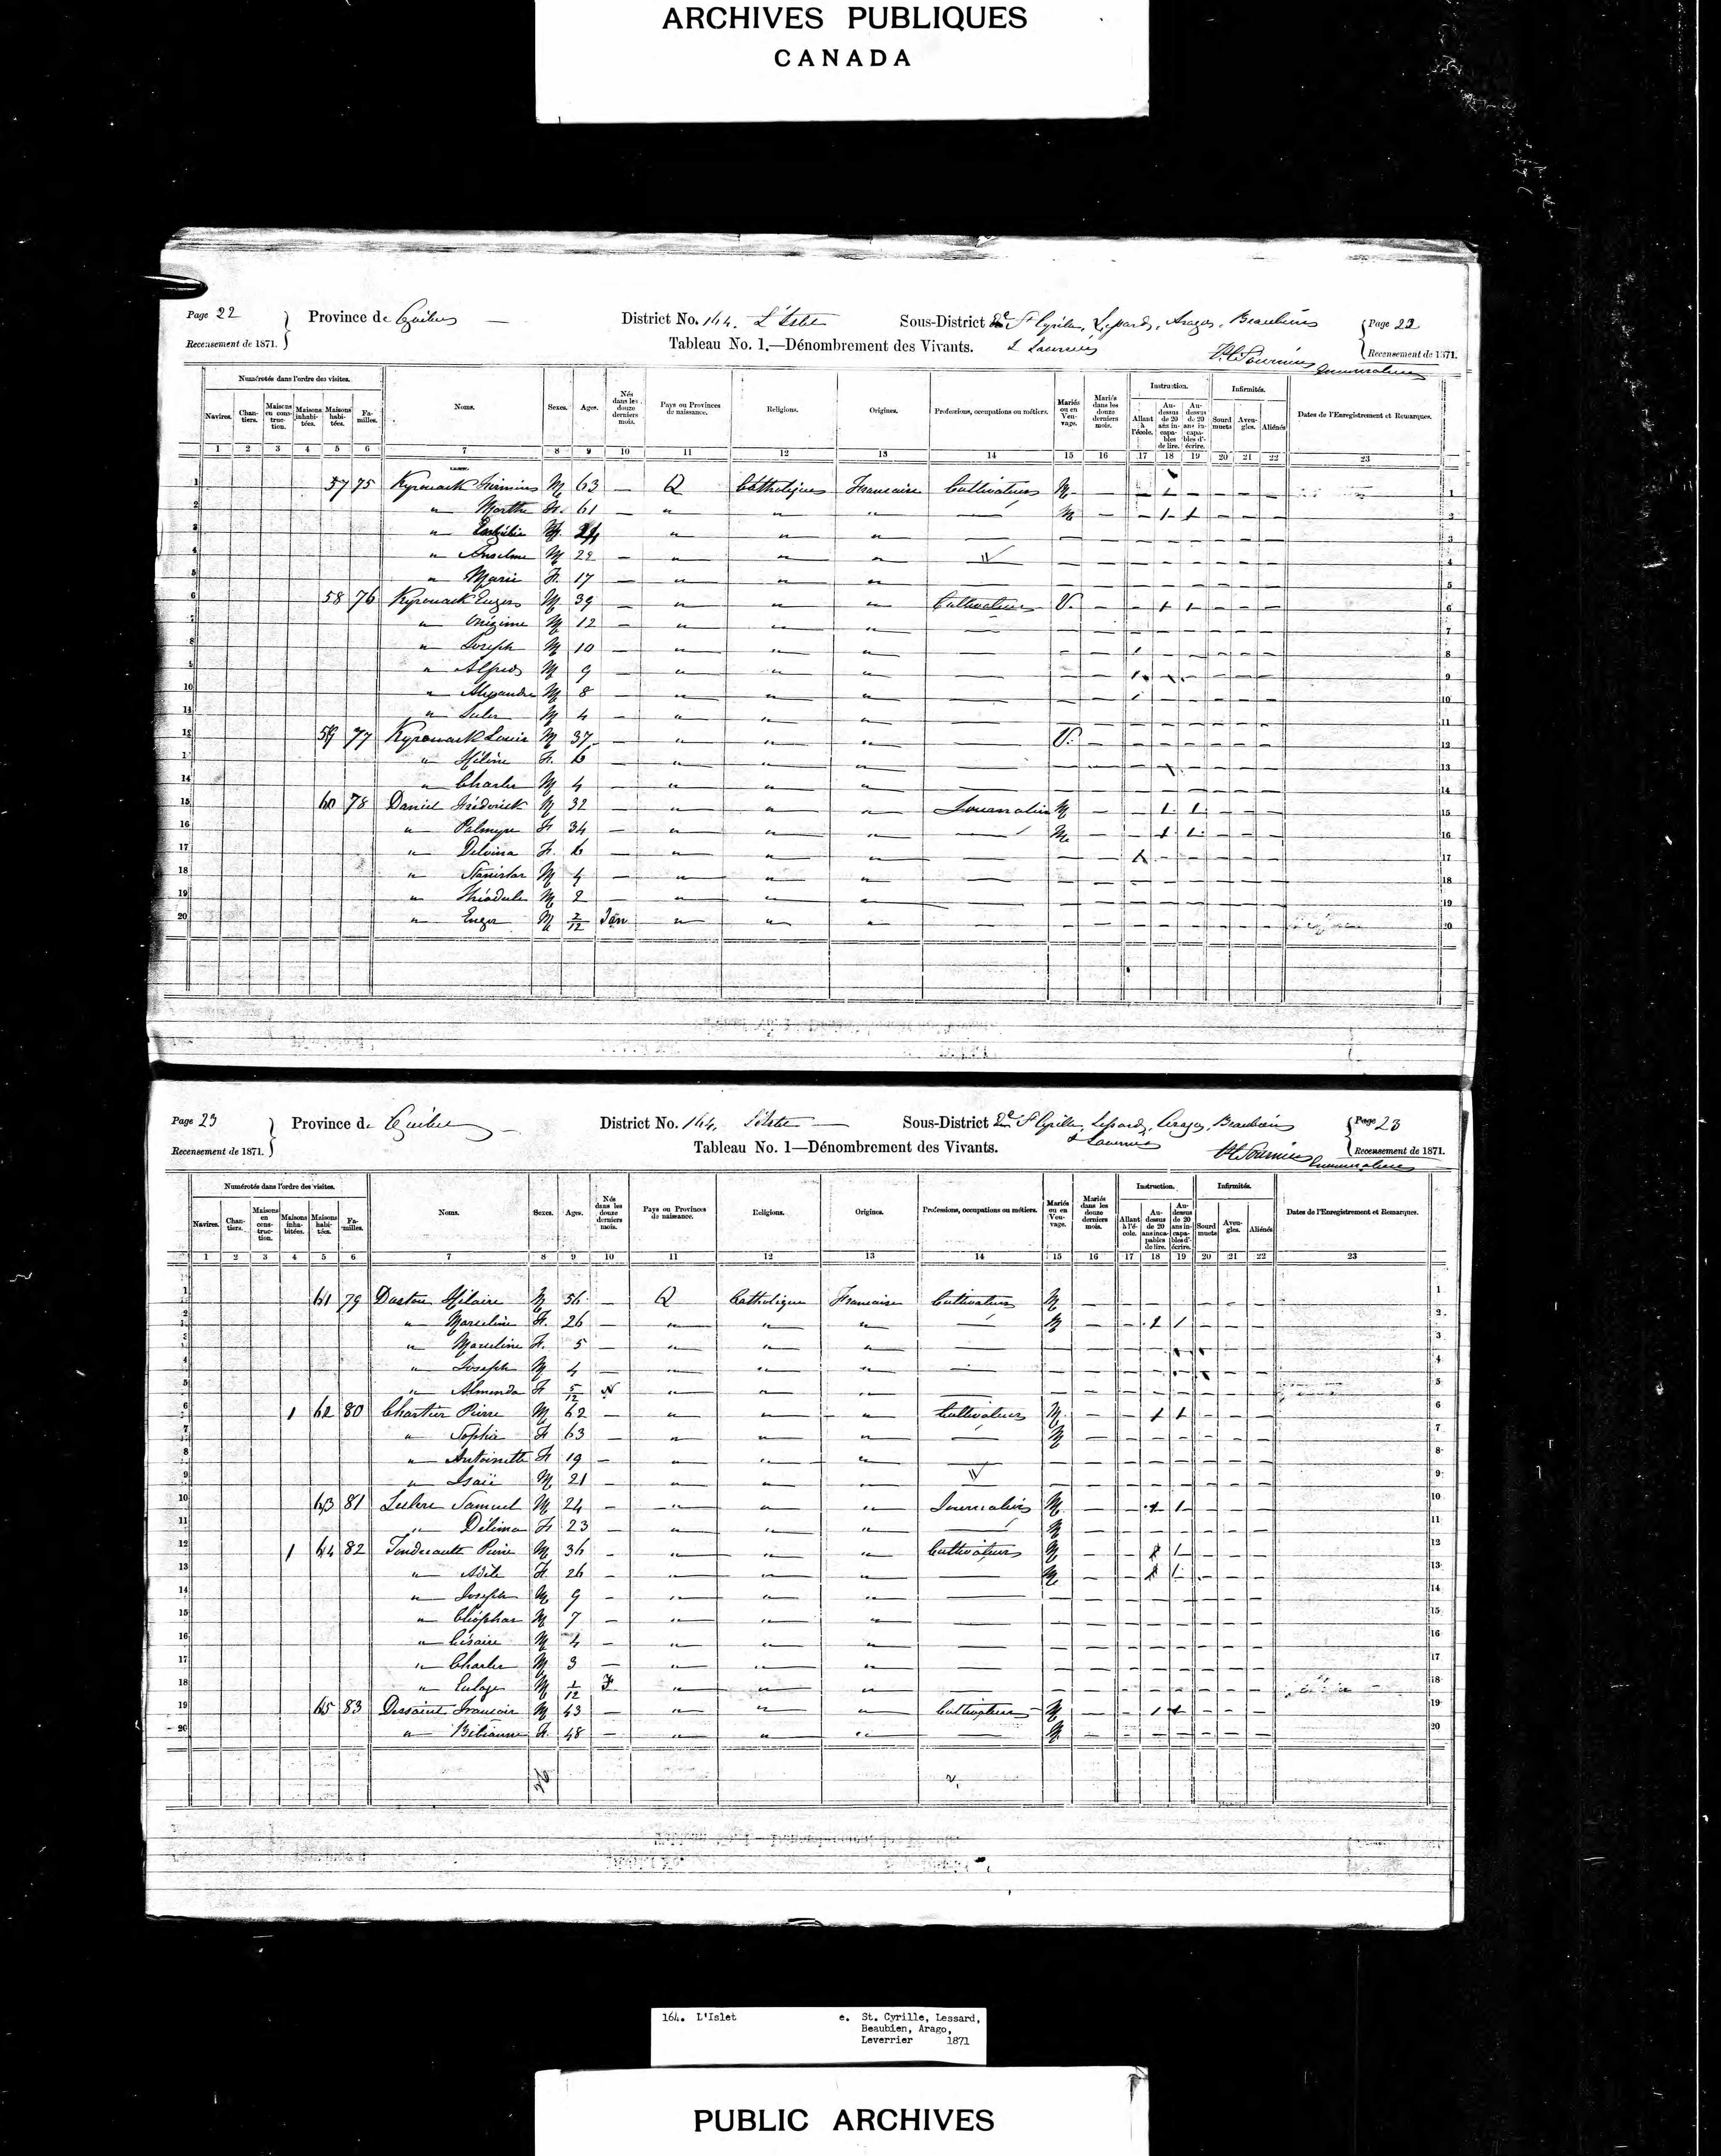 ARCHIVES PUBLIQUES
CANADA
Page 22 Province de Québec District No. 164. L'Islet Sous-District St Cyrille, Lessard, Arago, Beaubien Page 22
Recensement de 1871. Tableau No. 1.—Dénombrement des Vivants. Recensement de 1871.
Numérotés dans l'ordre des visites. Instruction. Infirmités.
Navires. Chantiers. Maisons en construction. Maisons inhabitées. Maisons habitées. Familles. Noms. Sexes. Ages. Nés dans les douze derniers mois. Pays ou Provinces de naissance. Religions. Origines. Professions, occupations ou métiers. Mariés ou en Veuvage. Mariés dans les douze derniers mois. Allant à l'école. Au-dessus de 20 ans incapables de lire. Au-dessus de 20 ans incapables d'écrire. Sourd muets Aveugles. Aliénés Dates de l'Enregistrement et Remarques.
1 2 3 4 5 6 7 8 9 10 11 12 13 14 15 16 17 18 19 20 21 22 23
1 57 75 Kyrouack Firmin M 63 — Q Catholique Francaise Cultivateur M — 1
2 " Marthe F. 61 — " " " — M — 1 1
3 " M " " "
4 " Anselme M 22 — " " " —
5 " Marie F. 17 — " " " —
6 58 76 Kyrouack M 39 — " " " Cultivateur V. — 1 1
7 " Onézime M 12 — " " " —
8 " Joseph M 10 — " " " — 1
9 " Alfred M 9 — " " " — 1
10 " Alexandre M 8 — " " " — 1
11 " M 4 — " " " —
12 59 77 Kyrouack Louis M 37 — " " " — V. —
13 " Hélène F. 6 — " " " —
14 " Charles M 4 — " " " —
15 60 78 Daniel Fréderick M 32 — " " " Journalier M — 1 1
16 " Palmyre F 34 — " " " — M — 1 1
17 " Delvina F. 6 — " " " — 1
18 " Stanislas M 4 — " " " —
19 " Théodule M 2 — " " " —
20 " M 2/12 Jan " " " —
Page 23 Province de Québec District No. 164. L'Islet Sous-District St Cyrille, Lessard, Arago, Beaubien Page 23
Recensement de 1871. Tableau No. 1—Dénombrement des Vivants. Recensement de 1871.
Numérotés dans l'ordre des visites. Instruction. Infirmités.
Navires. Chantiers. Maisons en construction. Maisons inhabitées. Maisons habitées. Familles. Noms. Sexes. Ages. Nés dans les douze derniers mois. Pays ou Provinces de naissance. Religions. Origines. Professions, occupations ou métiers. Mariés ou en Veuvage. Mariés dans les douze derniers mois. Allant à l'école. Au-dessus de 20 ans incapables de lire. Au-dessus de 20 ans incapables d'écrire. Sourd muets Aveugles. Aliénés Dates de l'Enregistrement et Remarques.
1 2 3 4 5 6 7 8 9 10 11 12 13 14 15 16 17 18 19 20 21 22 23
1 61 79 Hilaire M 56 — Q Catholique Francaise Cultivateur M —
2 " Marceline F. 26 — " " " — M — 1 1
3 " Marceline F. 5 — " " " —
4 " Joseph M 4 — " " " —
5 " Almenda F 5/12 N " " " —
6 1 62 80 Chartier Pierre M 62 — " " " Cultivateur M — 1 1
7 " Sophie F 63 — " " " — M —
8 " Antoinette F 19 — " " " —
9 " Isaïe M 21 — " " " —
10 63 81 Samuel M 24 — " " " Journalier M — 1 1
11 " Délima F 23 — " " " — M —
12 1 64 82 Pierre M 36 — " " " Cultivateur M — 1 1
13 " Adèle F. 26 — " " " — M — 1 1
14 " Joseph M 9 — " " " —
15 " Cléophas M 7 — " " " —
16 " Césaire M 4 — " " " —
17 " Charles M 3 — " " " —
18 " M 1/12 F " " " —
19 65 83 Dessaint Francois M 43 — " " " Cultivateur M — 1 1
20 " Bibianne F. 48 — " " " — M —
164. L'Islet e. St. Cyrille, Lessard,
Beaubien, Arago,
Leverrier 1871
PUBLIC ARCHIVES